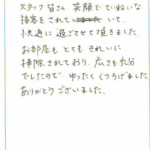 スタッフ皆さん笑顔でていねいな
接客をされていて、
快適に過ごさせて頂きました。
お部屋もとてもきれいに
掃除されており、広さも充分
でしたので、ゆったりくつろげました。
ありがとうございました。